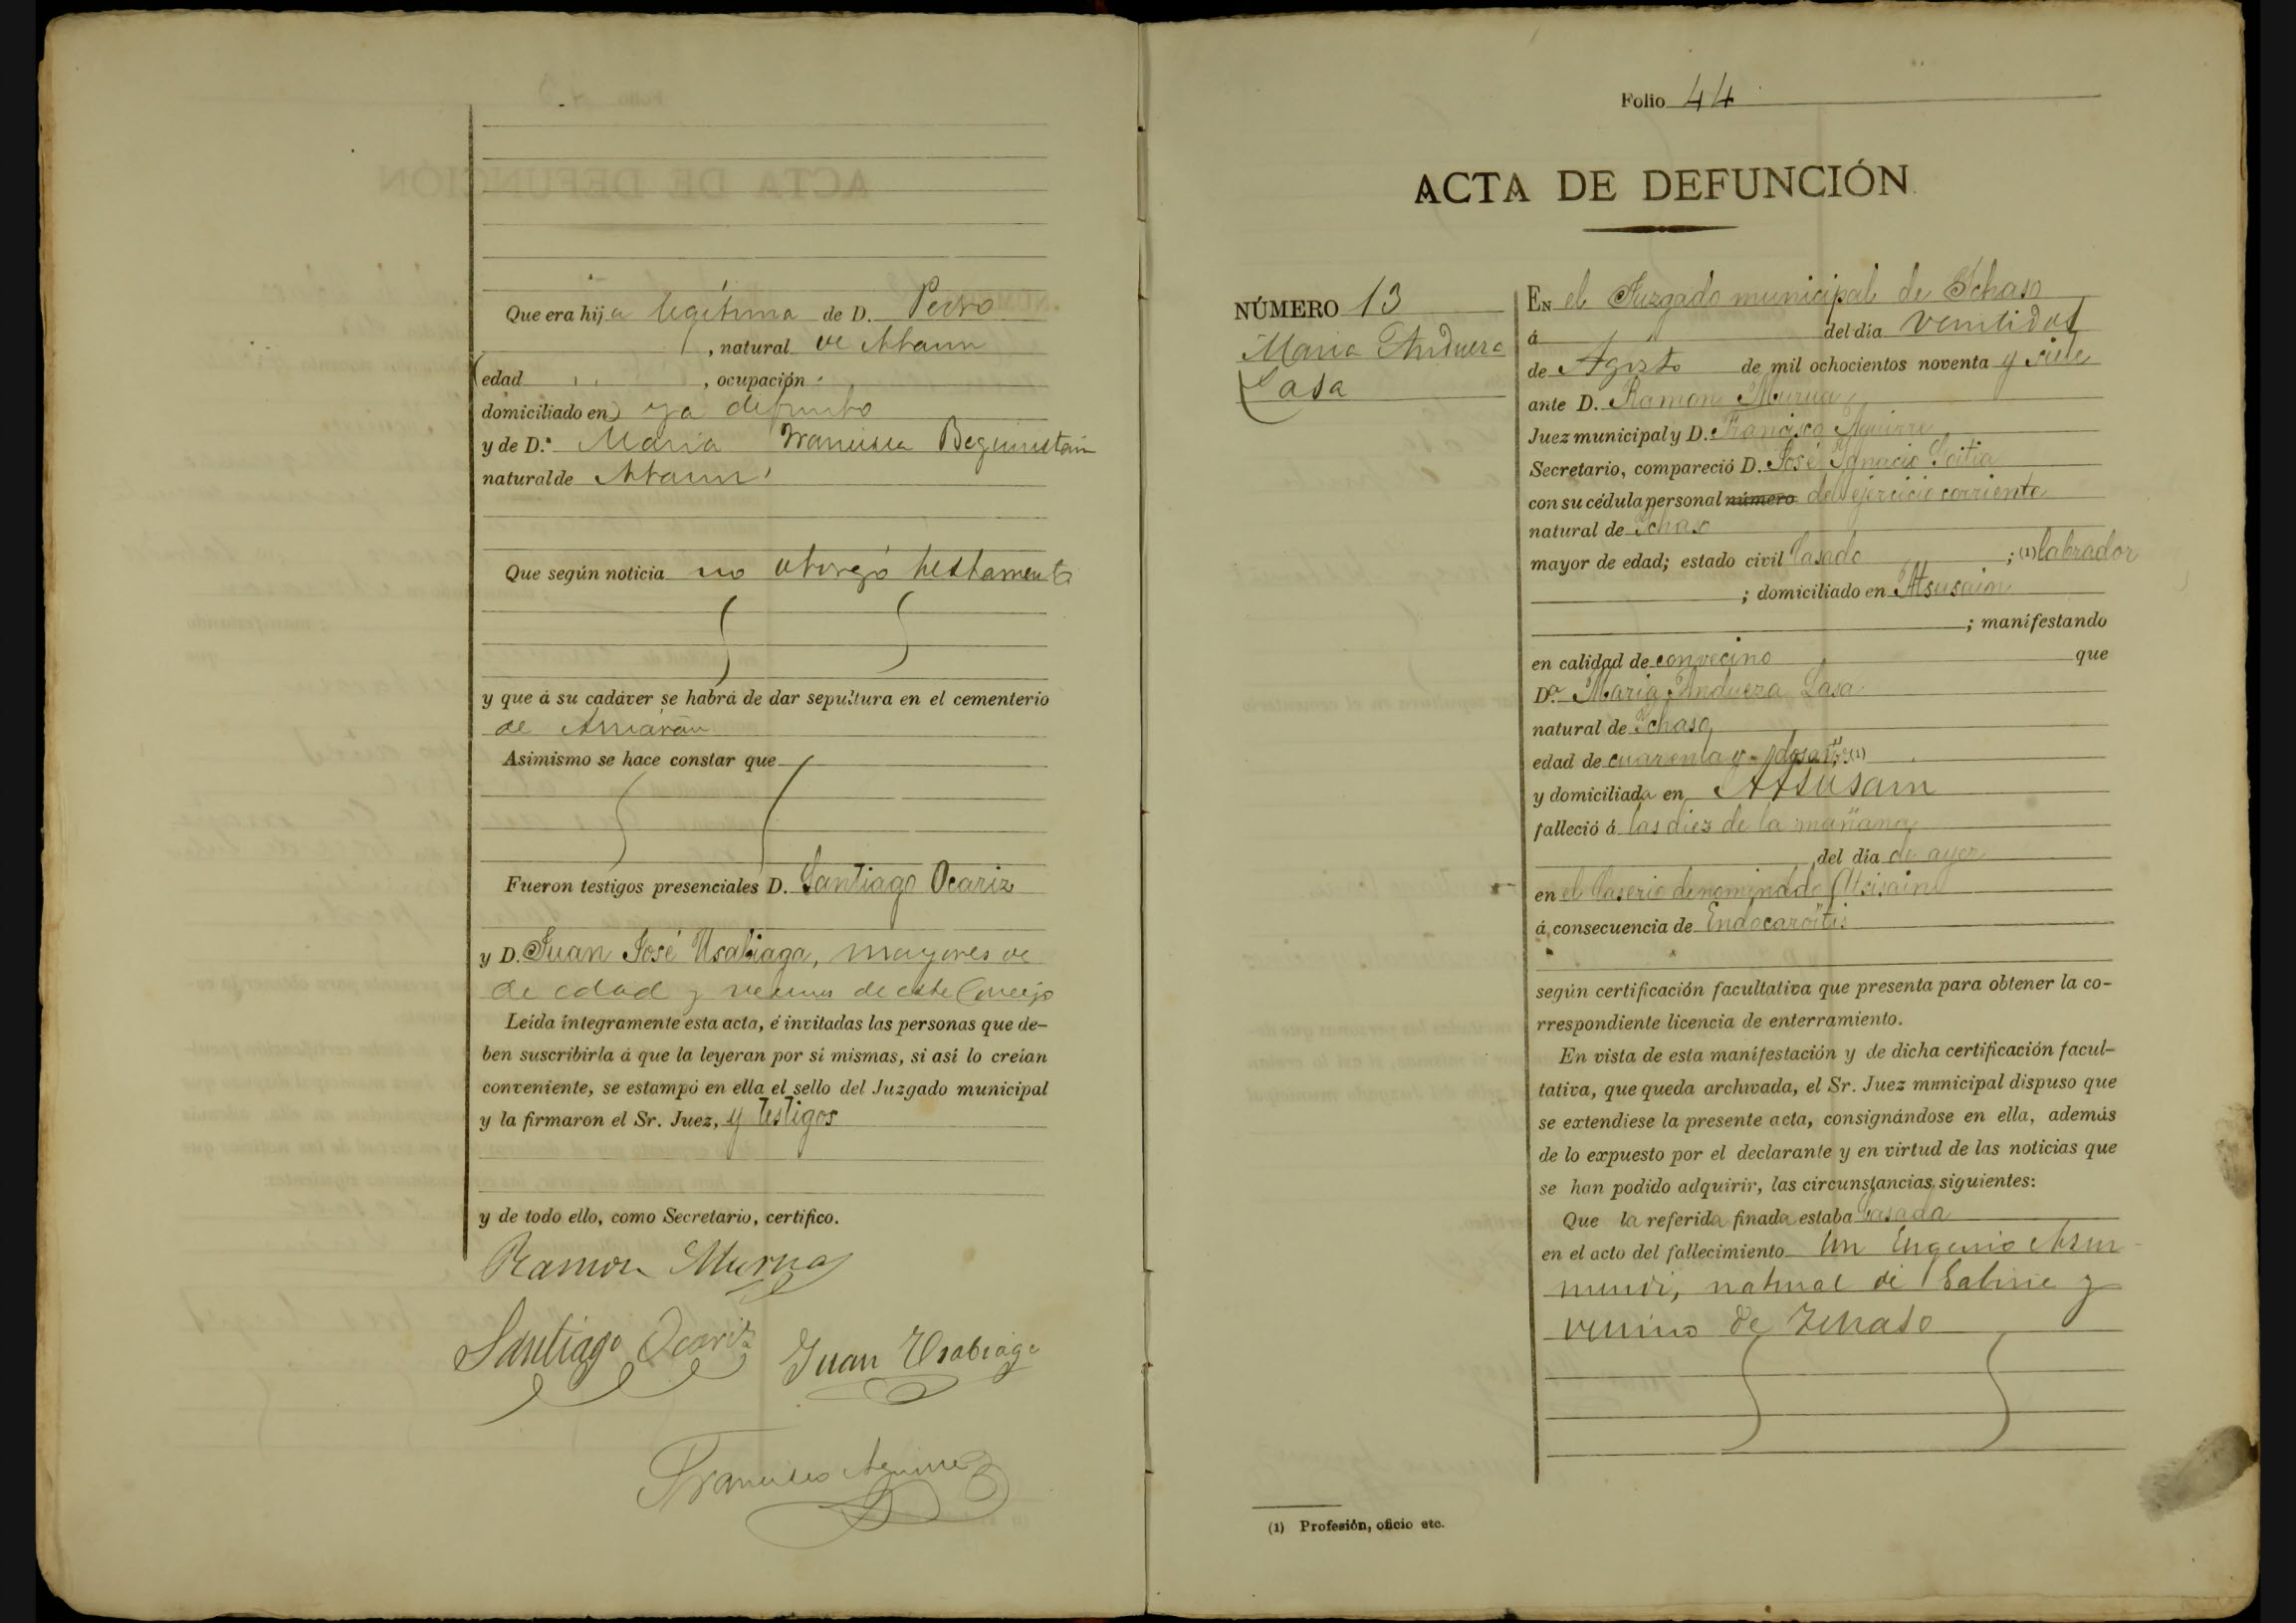 Que era hija legítima de D. Pedro
, natural de Ataun
(edad , ocupación
domiciliado en) ya difunto
y de D.ª Maria Francisca Beguiristain
natural de Ataun
Que según noticia no otorgó testamento
y que á su cadáver se habrá de dar sepultura en el cementerio
de
Asimismo se hace constar que
Fueron testigos presenciales D. Santiago Ocariz
y D. Juan José Usabiaga, mayores de
de edad y vecinos de este Concejo
Leída íntegramente esta acta, é invitadas las personas que de-
ben suscribirla á que la leyeran por sí mismas, si así lo creían
conveniente, se estampó en ella el sello del Juzgado municipal
y la firmaron el Sr. Juez, y testigos
y de todo ello, como Secretario, certifico.
Ramon Murua
Santiago Ocariz Juan Usabiaga
Francisco Aguirre
Folio 44
ACTA DE DEFUNCIÓN
NÚMERO 13
Maria Andueza
Lasa
EN el Juzgado municipal de Ichaso
á " del día ventidos
de Agosto de mil ochocientos noventa y siete
ante D. Ramon Murua
Juez municipal y D. Francisco Aguirre
Secretario, compareció D. José Ignacio Goitia
con su cédula personal número del ejercicio corriente
natural de Ichaso
mayor de edad; estado civil Casado ; (1) labrador
; domiciliado en Atsusain
; manifestando
en calidad de convecino que
D.ª Maria Andueza Lasa
natural de Ichaso
edad de cuarenta y dos añ.s (1)
y domiciliada en Atsusain
falleció á las diez de la mañana
del día de ayer
en el Caserio denominado Atsusain
á consecuencia de Endocarditis
según certificación facultativa que presenta para obtener la co-
rrespondiente licencia de enterramiento.
En vista de esta manifestación y de dicha certificación facul-
tativa, que queda archivada, el Sr. Juez municipal dispuso que
se extendiese la presente acta, consignándose en ella, además
de lo expuesto por el declarante y en virtud de las noticias que
se han podido adquirir, las circunstancias siguientes:
Que la referida finada estaba Casada
en el acto del fallecimiento con Eugenio Asur
mendi, natural de Gabiria y
vecino de Ichaso
(1) Profesión, oficio etc.